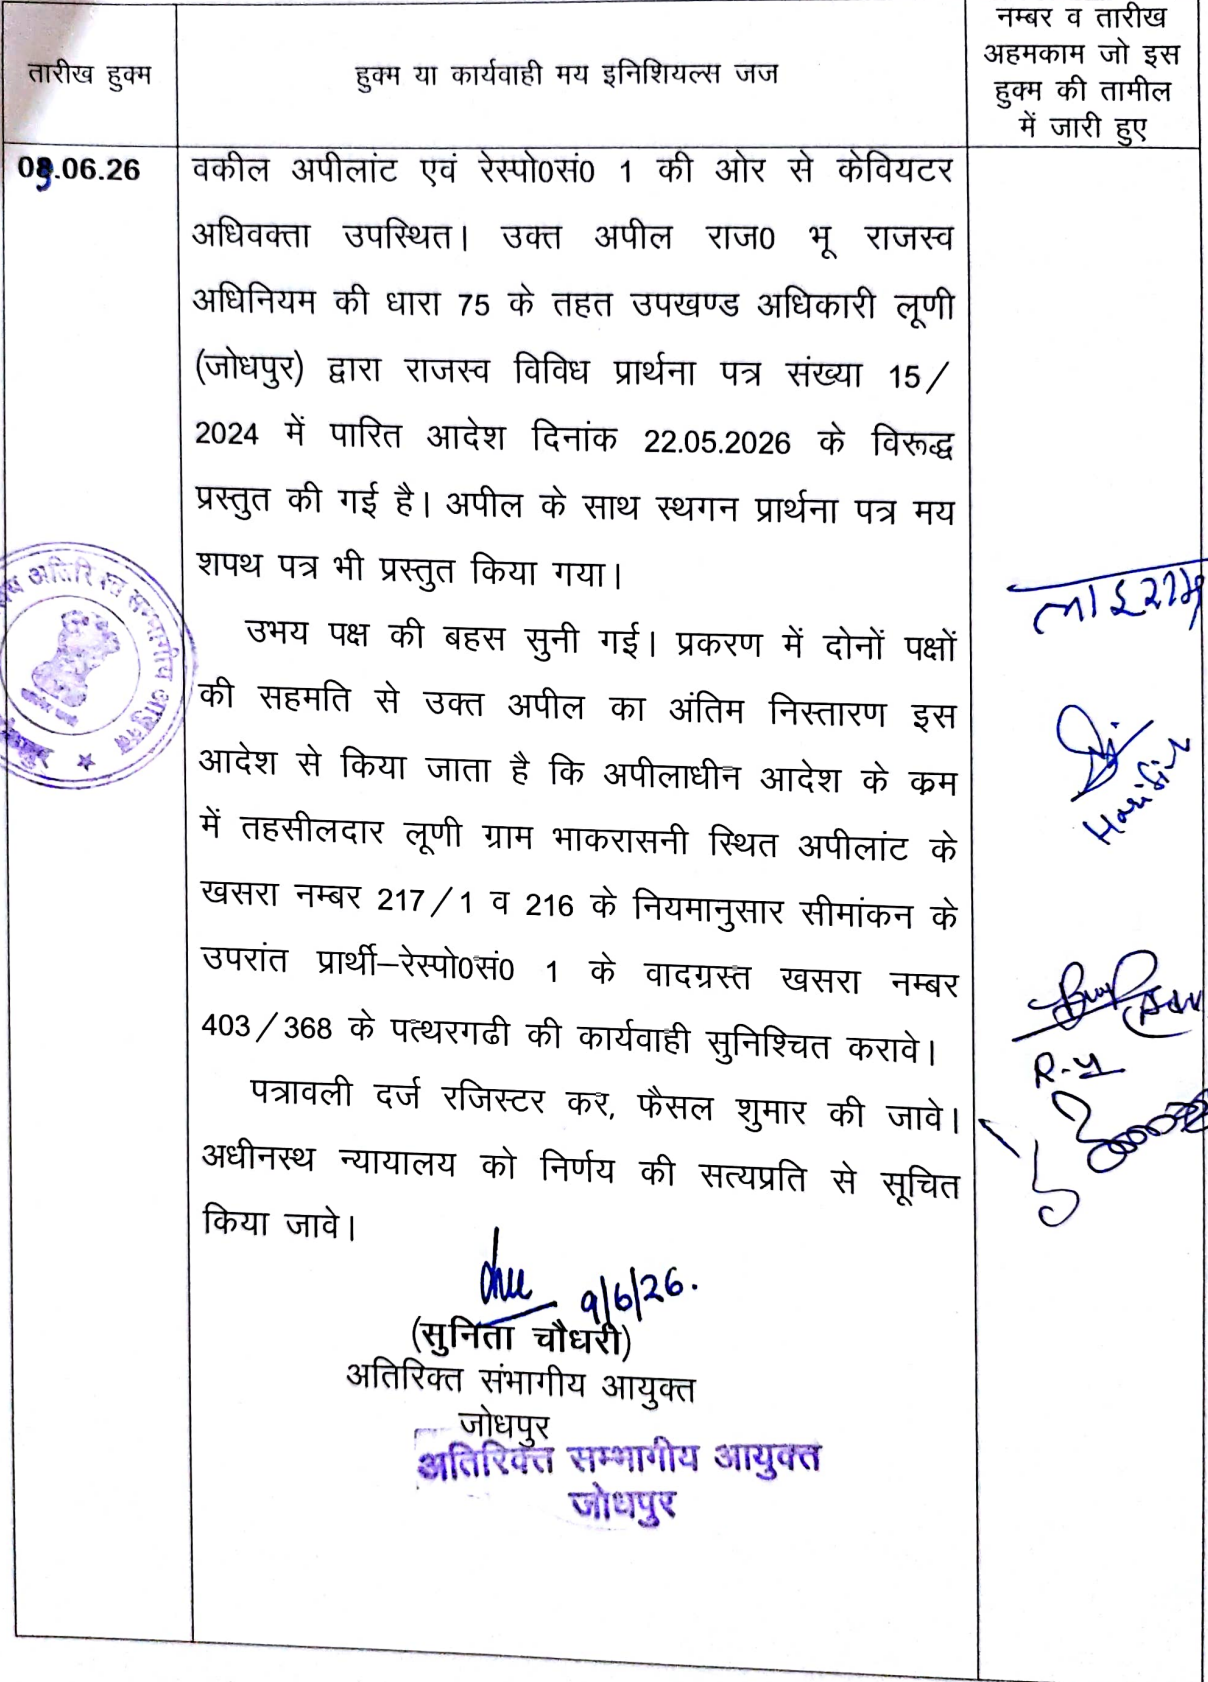 तारीख हुक्म
हुक्म या कार्यवाही मय इनिशियल्स जज
नम्बर व तारीख
अहमकाम जो इस
हुक्म की तामील
में जारी हुए
09.06.26
वकील अपीलांट एवं रेस्पो0सं0 1 की ओर से केवियटर
अधिवक्ता उपस्थित। उक्त अपील राज0 भू राजस्व
अधिनियम की धारा 75 के तहत उपखण्ड अधिकारी लूणी
(जोधपुर) द्वारा राजस्व विविध प्रार्थना पत्र संख्या 15/
2024 में पारित आदेश दिनांक 22.05.2026 के विरूद्ध
प्रस्तुत की गई है। अपील के साथ स्थगन प्रार्थना पत्र मय
शपथ पत्र भी प्रस्तुत किया गया।
उभय पक्ष की बहस सुनी गई। प्रकरण में दोनों पक्षों
की सहमति से उक्त अपील का अंतिम निस्तारण इस
आदेश से किया जाता है कि अपीलाधीन आदेश के क्रम
में तहसीलदार लूणी ग्राम भाकरासनी स्थित अपीलांट के
खसरा नम्बर 217/1 व 216 के नियमानुसार सीमांकन के
उपरांत प्रार्थी–रेस्पो0सं0 1 के वादग्रस्त खसरा नम्बर
403/368 के पत्थरगढी की कार्यवाही सुनिश्चित करावे।
पत्रावली दर्ज रजिस्टर कर, फैसल शुमार की जावे।
अधीनस्थ न्यायालय को निर्णय की सत्यप्रति से सूचित
किया जावे।
9/6/26.
(सुनिता चौधरी)
अतिरिक्त संभागीय आयुक्त
जोधपुर
अतिरिक्त सम्भागीय आयुक्त
जोधपुर
अतिरिक्त सम्भागीय आयुक्त